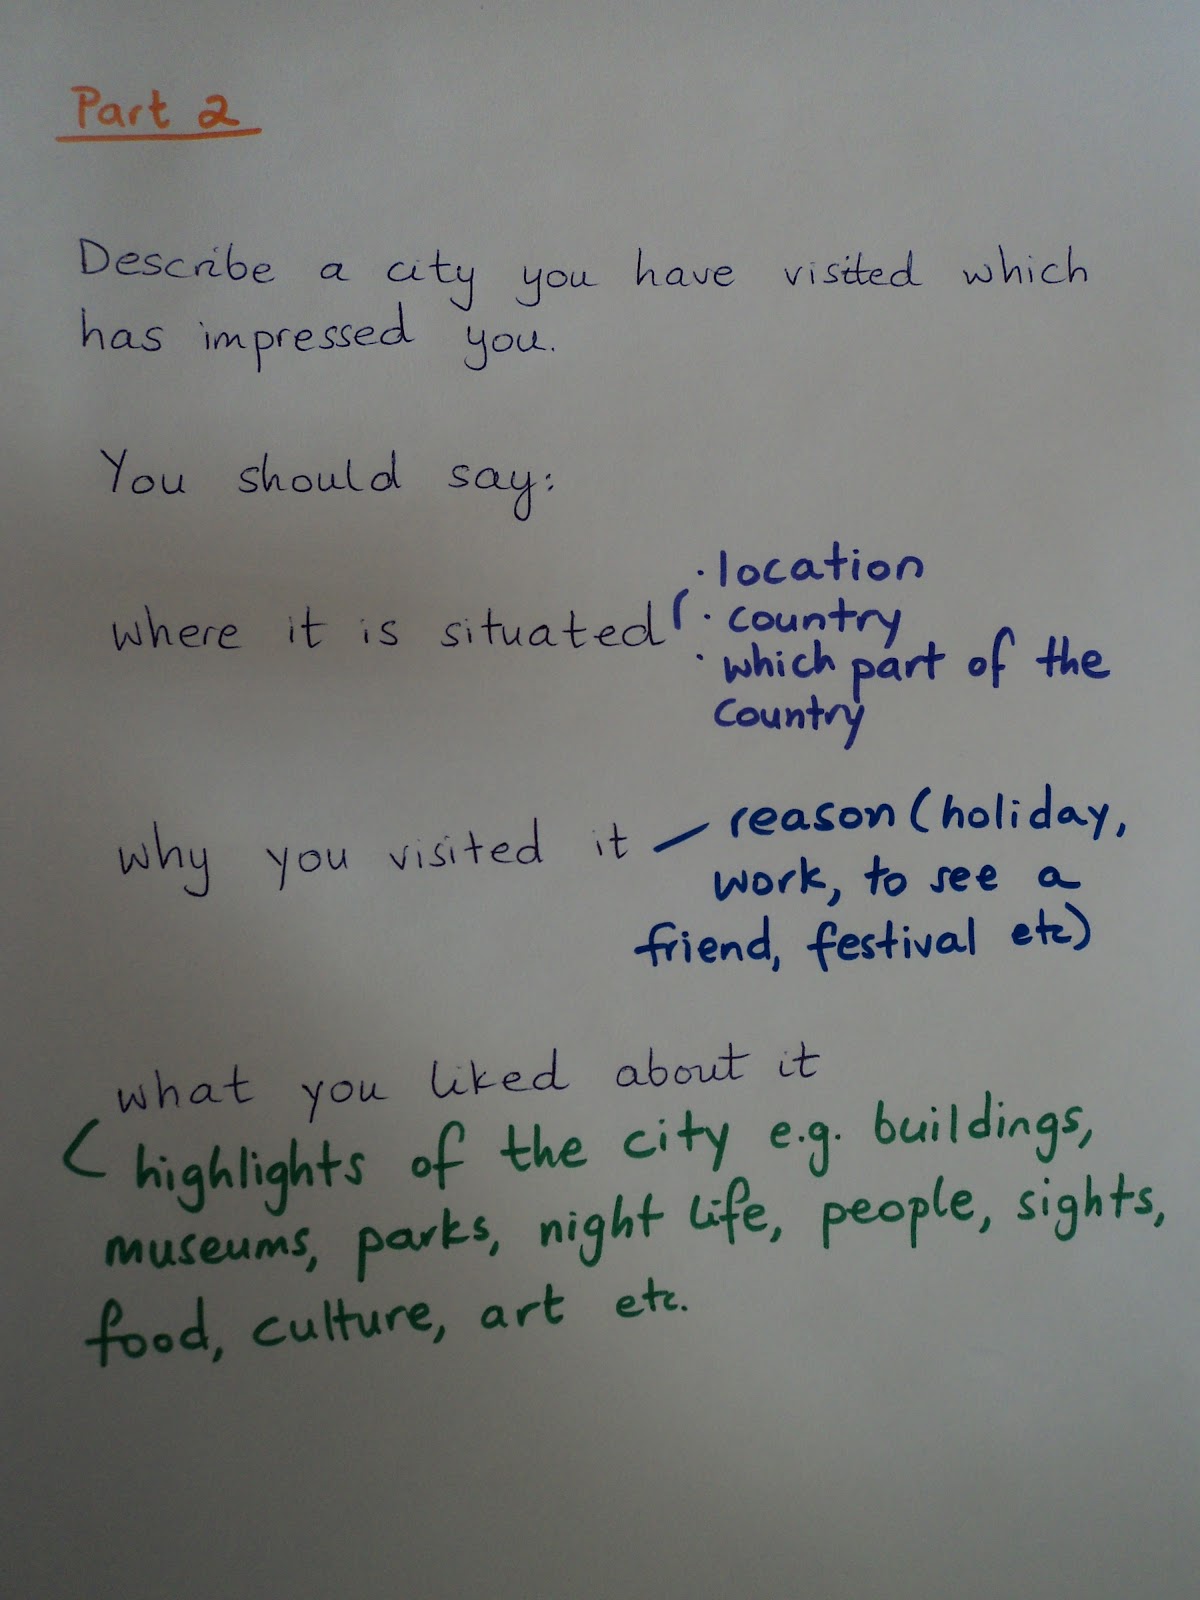 Part 2
Describe a city you have visited which
has impressed you.
You should say:
where it is situated
· location
· country
· which part of the
country
why you visited it – reason (holiday,
work, to see a
friend, festival etc)
what you liked about it
( highlights of the city e.g. buildings,
museums, parks, night life, people, sights,
food, culture, art etc.